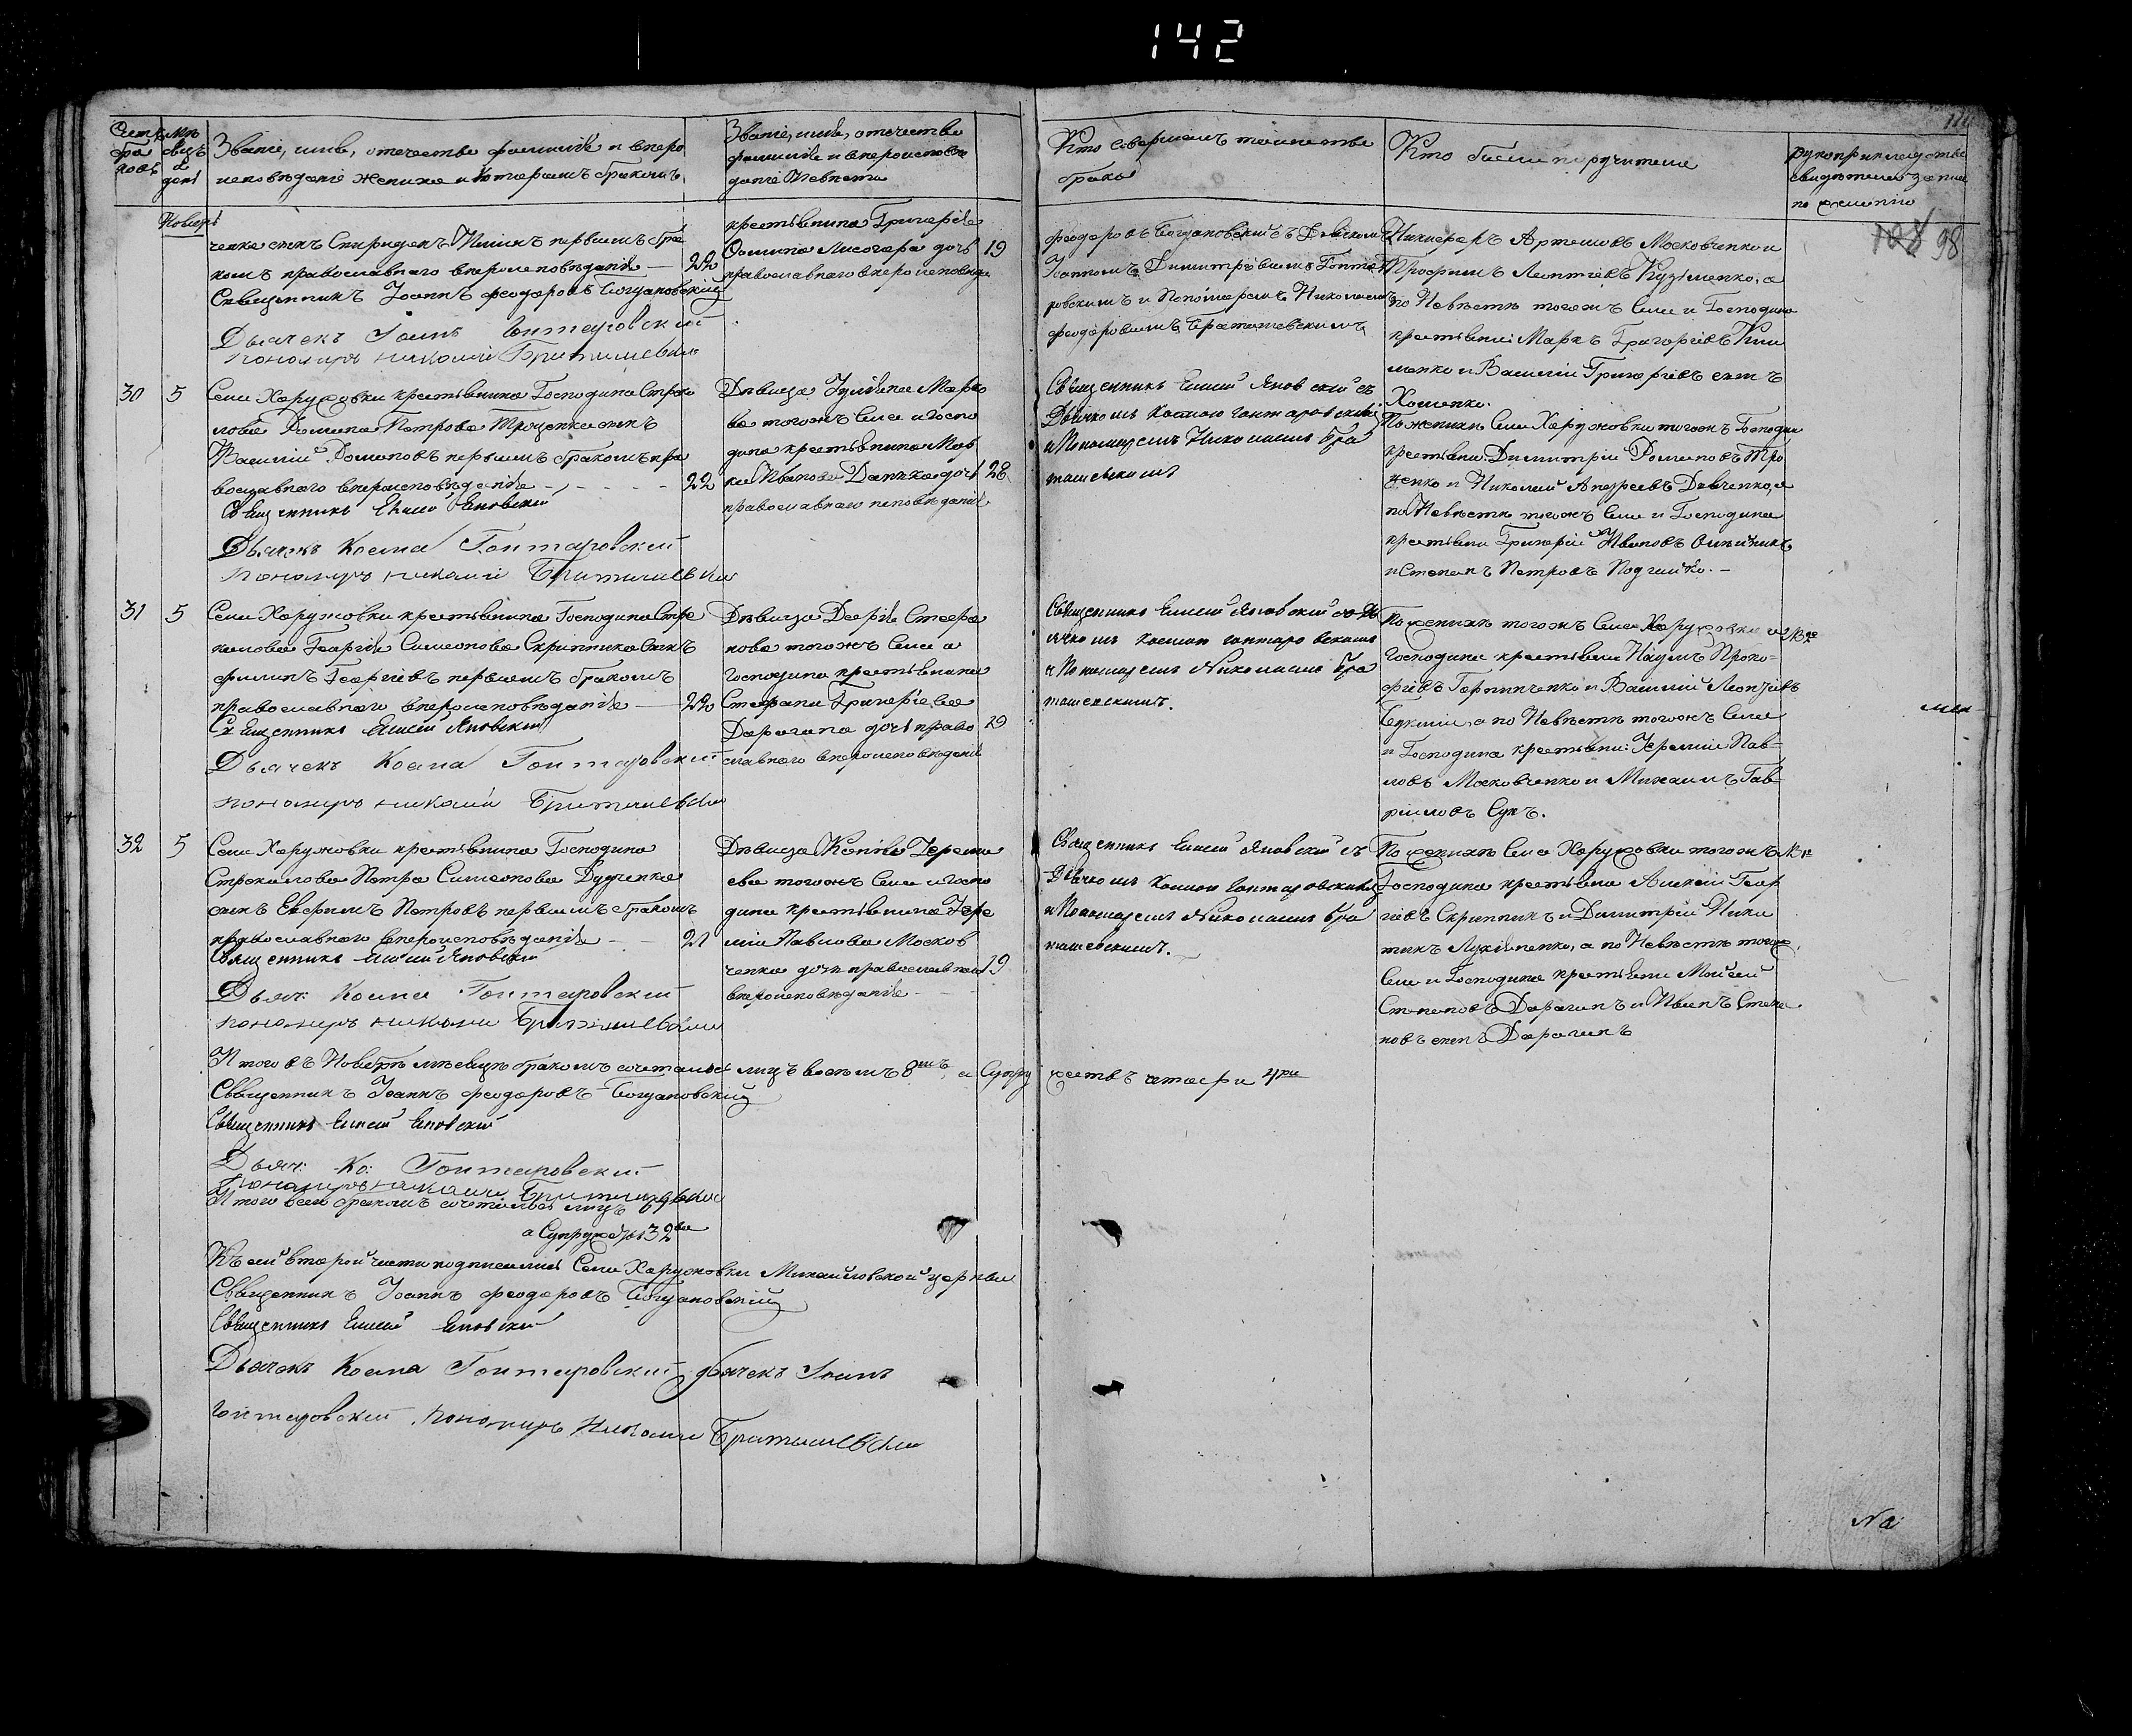 142
Счетъ браковъ
Мѣсяцъ и день
Званіе, имя, отечество фамилія и вѣро
исповѣданіе жениха и которымъ бракомъ
Званіе, имя, отечество
фамилія и вѣроисповѣ
даніе Невѣсты
Кто совершалъ таинство
брака
Кто были поручители
рукоприкладство
свидѣтелей записи
по желанію
98
Ноябрь
ченка сынъ Спиридонъ первымъ бра
комъ православнаго вѣроисповѣданія — 22
Священникъ Іоаннъ Феодоровъ Богдановскій
Дьячекъ Іоаннъ Гонтаровскій
пономарь Николай Братишевскій
крестьянина Григорія
Лисогора дочь 19
православнаго вѣроисповѣд
Феодоровъ Богдановскій съ Дьячкомъ
Іоанномъ Димитріевымъ Гонта
ровскимъ и Пономаремъ Николаемъ
Феодоровымъ Братишевскимъ
Никифоръ Артемовъ Московченко и
Трофимъ Леонтіевъ Кузьменко, а
по Невѣстѣ тогожъ Села и Господина
крестьяни Марко Григоріевъ Кли
менко и Василій Григоріевъ сынъ
Хоменко.
30 5
Села Харужовки крестьянина Господина Строки
лова Романа Петрова Троценка сынъ
Василій Романовъ первымъ бракомъ пра
вославнаго вѣроисповѣданія - - - - 22
Священникъ Елисей Яновскій
Дьячекъ Косма Гонтаровскій
пономарь Николай Братишевскій
Дѣвица Іуліянія Марко
ва тогожъ Села и Госпо
дина крестьянина Мар
ка Иванова дочь 28
православнаго исповѣданія
Священникъ Елисей Яновскій съ
Дьячкомъ Космою Гонтаровскимъ
и Пономаремъ Николаемъ Бра
тишевскимъ
По женихѣ Села Харужовки тогожъ Господина
крестьяни Димитрій Романовъ Тро
ценко и Николай Андреевъ Давченко, а
по Невѣстѣ тогожъ Села и Господина
крестьяни Григорій Ивановъ
и Степанъ Петровъ
31 5
Села Харужовки крестьянина Господина Стро
килова Георгія Симеонова Скрипника Сынъ
Филипъ Георгіевъ первымъ бракомъ
православнаго вѣроисповѣданія — 22
Священникъ Елисей Яновскій
Дьячекъ Косма Гонтаровскій
пономарь Николай Братишевскій
Дѣвица Дарія Стефа
нова тогожъ Села и
Господина крестьянина
Стефана Григоріева
Дарагана дочь право 19
славнаго вѣроисповѣданія
Священникъ Елисей Яновскій со Дь
ячкомъ Космою Гонтаровскимъ
и Пономаремъ Николаемъ Бра
тишевскимъ.
По женихѣ тогожъ Села Харужовки и
Господина крестьяни Наумъ Проко=
фіевъ и Василій Леонтіевъ
а по Невѣстѣ тогожъ Села
и Господина крестьяни: Іеремій Пав=
ловъ Московченко и Михаилъ Гав
риловъ Сукъ.
32 5
Села Харужовки крестьянина Господина
Строкилова Петра Симеонова Дудченка
сынъ Евфимъ Петровъ первымъ бракомъ
православнаго вѣроисповѣданія - - 21
Священникъ Елисей Яновскій
Дьяч: Косма Гонтаровскій
пономарь Николай Братишевскій
Дѣвица Ксенія Іереми
ева тогожъ Села и Госпо
дина крестьянина Іере
мія Павлова Москов
ченка дочь православнаго 19
вѣроисповѣданія
Священникъ Елисей Яновскій съ
Дьячкомъ Космою Гонтаровскимъ
и Пономаремъ Николаемъ Бра
тишевскимъ.
По женихѣ Села Харужовки тогожъ
Господина крестьяни Алексѣй Геор
гіевъ Скрипникъ и Димитрій Ники
тинъ Лукьяненко, а по Невѣстѣ тогожъ
Села и Господина крестьяни Моисей
Степановъ Дараганъ и Иванъ Степа
новъ сынъ Дараганъ
Итого въ Ноябрѣ мѣсяцѣ бракомъ сочеталось лицъ восемъ 8мъ, а Супру
жествъ четыри 4ри
Священникъ Іоаннъ Феодоровъ Богдановскій
Священникъ Елисей Яновскій
Дьяч: Ко: Гонтаровскій
пономарь Николай Братишевскій
Итого всего бракомъ сочеталось лицъ 64
а Супружествъ 32ва
Къ сей второй части подписались Села Харужовки Михайловской церкви
Священникъ Іоаннъ Феодоровъ Богдановскій
Священникъ Елисей Яновскій
Дьячекъ Косма Гонтаровскій дьячекъ Іоаннъ
Гонтаровскій. Пономарь Николай Братишевскій